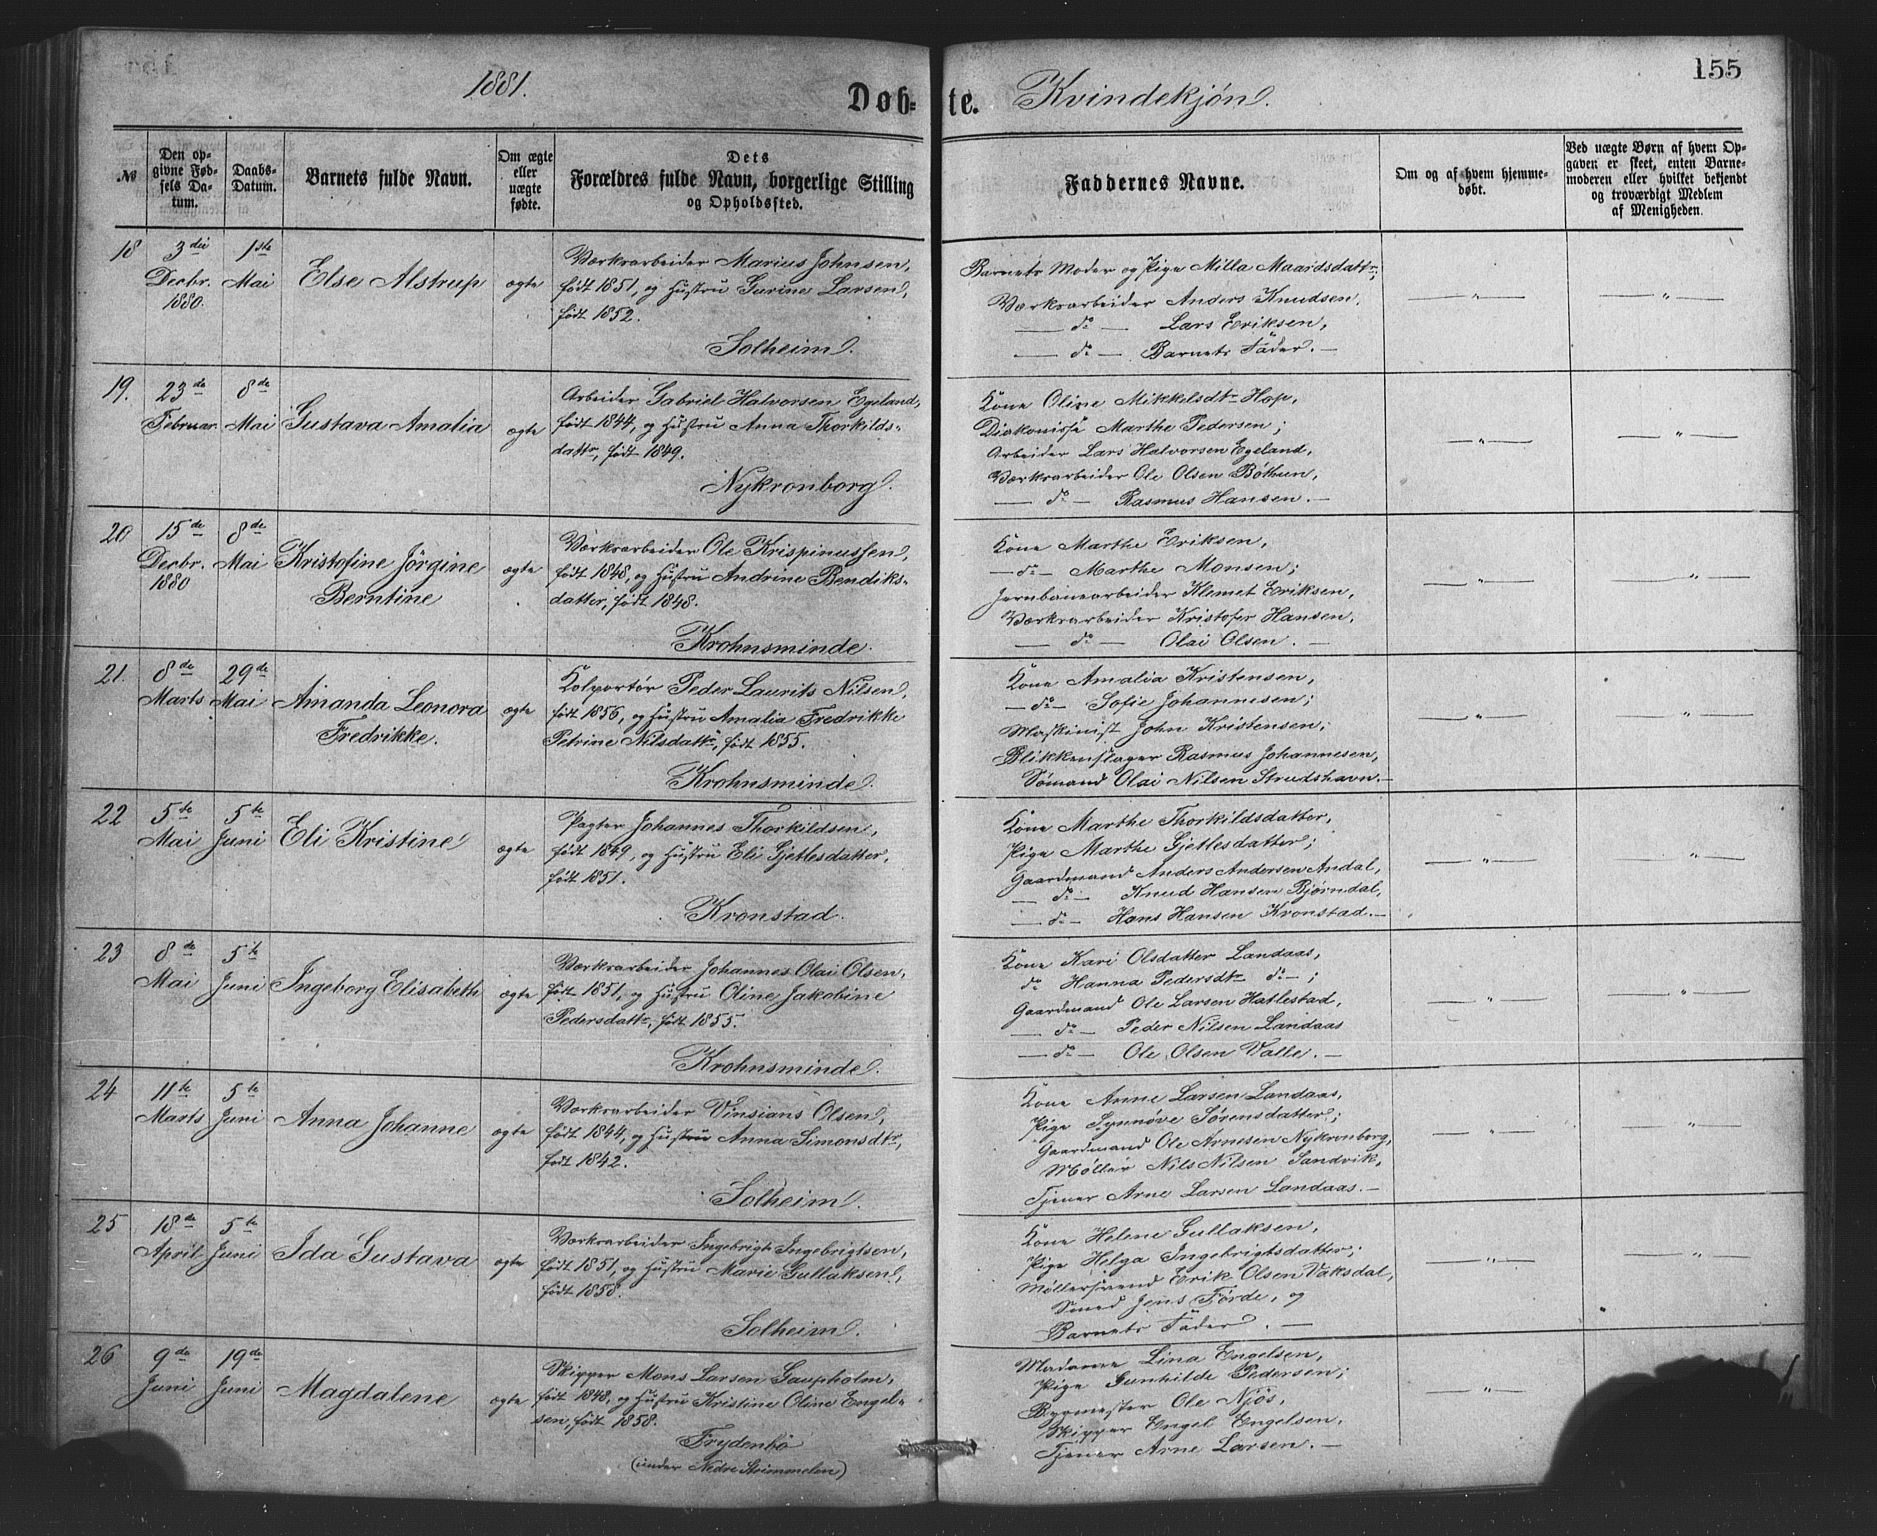 155
1881.
Døb-te. Kvindekjøn.
№
Den opgivne Fødsels Datum.
Daabs-Datum.
Barnets fulde Navn.
Om ægte eller uægte fødte.
Dets Forældres fulde Navn, borgerlige Stilling og Opholdssted.
Faddernes Navne.
Om og af hvem hjemmedøbt.
Ved uægte Børn af hvem Opgaven er skeet, enten Barnemoderen eller hvilket bekjendt og troværdigt Medlem af Menigheden.
18
3die Decbr. 1880.
1ste Mai
Else Alstrup
ægte
Værksarbeider Marius Johnsen,
født 1851, og Hustru Gurine Larsen,
født 1852.
Solheim.
Barnets Moder og Pige Milla Maardsdattr;
Værksarbeider Anders Knudsen,
— do — Lars Eriksen,
— do — Barnets Fader. —
— " —
— " —
19.
23de Februar
8de Mai
Gustava Amalia
ægte
Arbeider Gabriel Halvorsen Egeland,
født 1844, og Hustru Anna Thorkilds-
dattr, født 1849.
Nykronborg.
Kone Oline Mikkelsdtr Hop,
Diakonisse Marthe Pedersen;
Arbeider Lars Halvorsen Egeland,
Værksarbeider Ole Olsen Bøthun,
— do — Rasmus Hansen. —
— " —
— " —
20
15de Decbr. 1880
8de Mai
Kristofine Jörgine
Berntine
ægte
Værksarbeider Ole Krispinussen,
født 1848, og Hustru Andrine Bendiks-
datter, født 1848.
Krohnsminde.
Kone Marthe Eriksen,
— do — Marthe Monsen;
Jernbanearbeider Klemet Eriksen,
Værksarbeider Kristofer Hansen,
— do — Olai Olsen. —
— " —
— " —
21.
8de Marts
29de Mai
Amanda Leonora
Fredrikke.
ægte
Kolportör Peder Laurits Nilsen,
født 1856, og Hustru Amalia Fredrikke
Petrine Nilsdattr, født 1855.
Krohnsminde.
Kone Amalia Kristensen,
— do — Sofie Johannesen;
Maskinist John Kristensen;
Blikkenslager Rasmus Johannesen,
Sømand Olai Nilsen Strudshavn. —
— " —
— " —
22
5te Mai
5te Juni
Eli Kristine
ægte
Pagter Johannes Thorkildsen,
født 1849, og Hustru Eli Gjetlesdatter,
født 1851.
Kronstad.
Kone Marthe Thorkildsdatter,
Pige Marthe Gjetlesdatter;
Gaardmand Anders Andersen Andal,
— do — Knud Hansen Bjørndal,
— do — Hans Hansen Kronstad. —
— " —
— " —
23
8de Mai
5te Juni
Ingeborg Elisabeth
ægte
Værksarbeider Johannes Olai Olsen,
født 1851, og Hustru Oline Jakobine
Pedersdattr, født 1855.
Krohnsminde.
Kone Kari Olsdatter Landaas,
do Hanna Pedersdtr do — ;
Gaardmand Ole Larsen Hatlestad,
— do — Peder Nilsen Landaas
— do — Ole Olsen Valle. —
— " —
— " —
24
11te Marts
5te Juni
Anna Johanne
ægte
Værksarbeider Vinsians Olsen,
født 1844, og Hustru Anna Simonsdtr,
født 1842.
Solheim.
Kone Anne Larsen Landaas,
Pige Synnøve Sørensdatter;
Gaardmand Ole Arnesen Nykronborg,
Møller Nils Nilsen Sandvik,
Tjener Arne Larsen Landaas. —
— " —
— " —
25
18de April
5te Juni
Ida Gustava
ægte
Værksarbeider Ingebrigt Ingebrigtsen,
født 1851, og Hustru Marie Gullaksen,
født 1858.
Solheim.
Kone Helene Gullaksen,
Pige Helga Ingebrigtsdatter;
Møllersvend Erik Olsen Vaksdal,
Smed Jens Førde, og
Barnets Fader. —
— " —
— " —
26
9de Juni
19de Juni
Magdalene
ægte
Skipper Mons Larsen Gaupholm,
født 1848, og Hustru Kristine Oline Engel-
sen, født 1858.
Frydenbö
(under Nedre Strimmelen)
Madame Lina Engelsen,
Pige Gunhilde Pedersen;
Bygmester Ole Njøs,
Skipper Engel Engelsen,
Tjener Arne Larsen. —
— " —